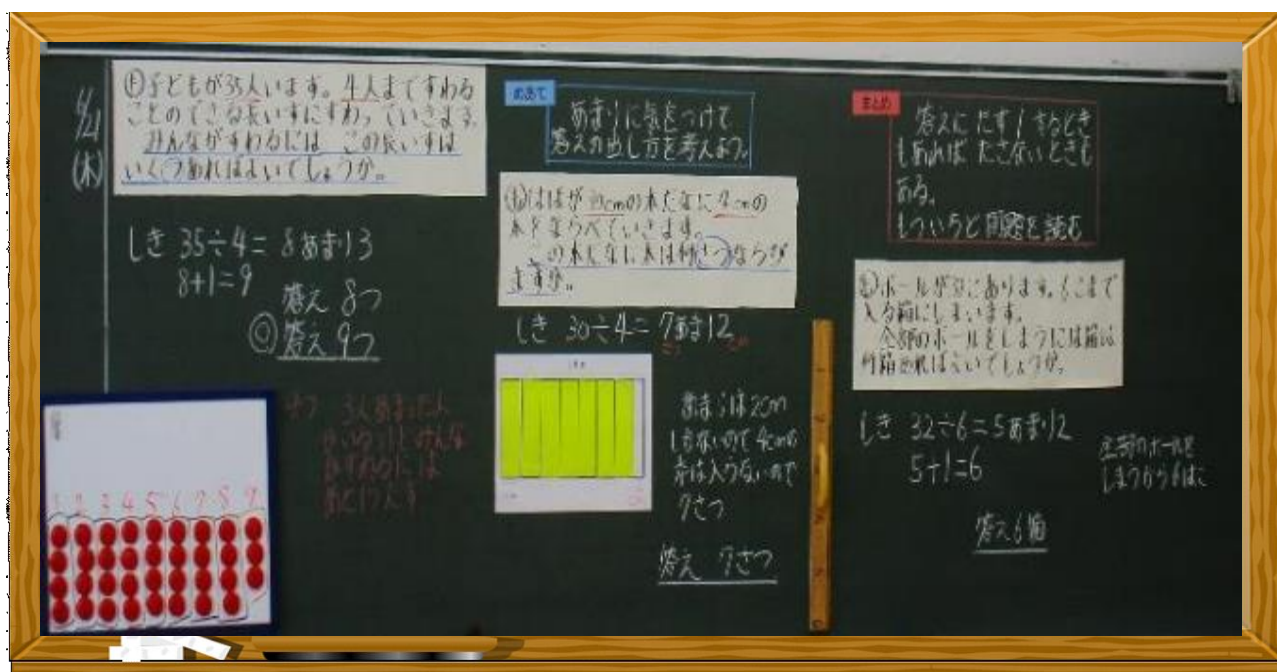 6/21
(木)
子どもが35人います。4人まですわる
ことのできる長いすにすわっていきます。
みんながすわるには この長いすは
いくつあればよいでしょうか。
しき 35÷4=8あまり3
8+1=9
答え 8つ
◎答え 9つ
1 2 3 4 5 6 7 8 9
めあて
あまりに気をつけて
答えの出し方を考えよう。
はばが30cmの本だなに4cmの
本をならべていきます。
この本だなに本は何さつならび
ますか。
しき 30÷4=7あまり2
あまりは2cm
しかないので4cmの
本は入らないので
7さつ
答え 7さつ
まとめ
答えに たす1するとき
もあれば たさないときも
ある。
もういちど問題を読む
ボールが32こあります。6こまで
入る箱にしまいます。
全部のボールをしまうには箱は
何箱あればよいでしょうか。
しき 32÷6=5あまり2
5+1=6
全部のボールを
しまうから6ぱこ
答え6箱